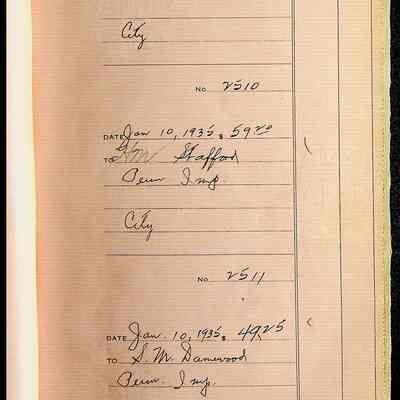 City
No. 2510
DATE Jan 10, 1935, $ 59.20
TO H M Stafford
Perm Imp.
City
No. 2511
DATE Jan. 10, 1935, $ 49.25
TO S. M. Damewood
Perm. Imp.